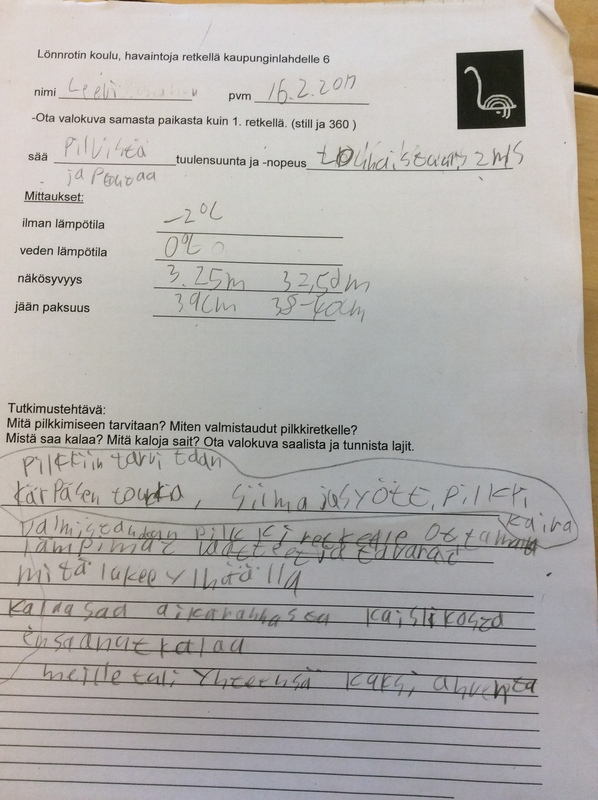 Lönnrotin koulu, havaintoja retkellä kaupunginlahdelle 6
nimi Leevi pvm 16.2.2017
-Ota valokuva samasta paikasta kuin 1. retkellä. (still ja 360 )
sää Pilvistä tuulensuunta ja -nopeus 2 m/s
ja Poutaa
Mittaukset:
ilman lämpötila -2°C
veden lämpötila 0°C
näkösyvyys 3.25m 32,5dm
jään paksuus 39cm 38-40cm
Tutkimustehtävä:
Mitä pilkkimiseen tarvitaan? Miten valmistaudut pilkkiretkelle?
Mistä saa kalaa? Mitä kaloja sait? Ota valokuva saalista ja tunnista lajit.
Pilkkiin tarvitaan
kärpäsen toukka, siima ja syött, pilkki,
kaira
valmistaudun pilkkiretkelle ottamalla
lämpimät vaatteet ja tavarat
mitä lukee ylhäällä
kalaa saa kaislikosta
en saanut kalaa
meille tuli yhteensä kaksi ahventa